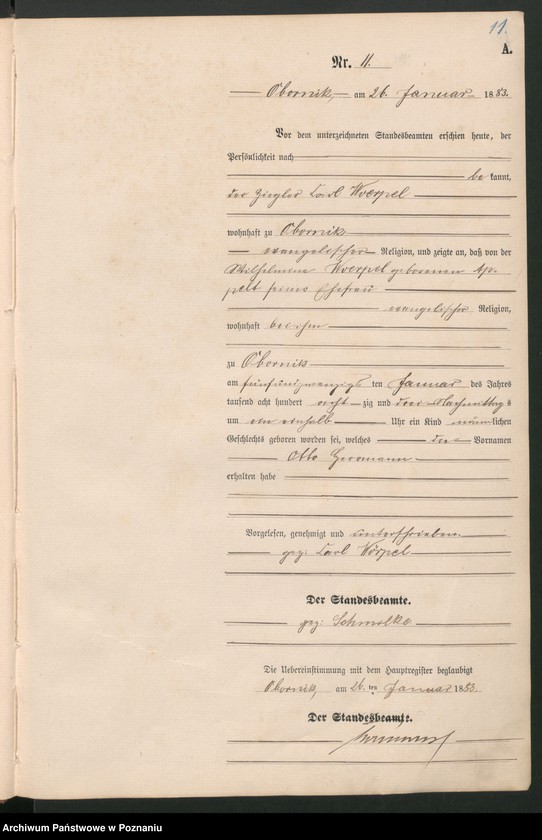 11.
A.
Nr. 11.
Obornik, am 26. Januar 1883.
Vor dem unterzeichneten Standesbeamten erschien heute, der
Persönlichkeit nach
be kannt,
der Ziegler Carl Woerpel
wohnhaft zu Obornik
evangelischer Religion, und zeigte an, daß von der
Wilhelmine Woerpel geborenen Ap-
pelt seiner Ehefrau
evangelischer Religion,
wohnhaft bei ihm
zu Obornik
am fünfundzwanzigs ten Januar des Jahres
tausend acht hundert acht zig und drei Nachmittag s
um ein einhalb Uhr ein Kind männ lichen
Geschlechts geboren worden sei, welches die Vornamen
Otto Hermann
erhalten habe
Vorgelesen, genehmigt und unterschrieben
gez: Carl Wörpel
Der Standesbeamte.
gez: Schmolke
Die Uebereinstimmung mit dem Hauptregister beglaubigt
Obornik, am 26. ten Januar 1883.
Der Standesbeamte.
Archiwum Państwowe w Poznaniu